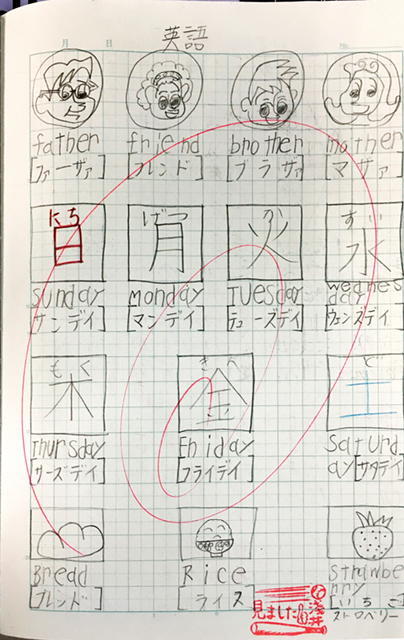 月 日
英語
father friend brother mother
[ファーザァ] [フレンド] [ブラザァ] [マザァ]
にち げつ か すい
日 月 火 水
Sunday Monday Tuesday Wednes
day
[サンデイ] [マンデイ] [テューズデイ] [ウェンズデイ]
もく きん ど
木 金 土
Thursday Friday Saturd
[サーズデイ] [フライデイ] ay [サタデイ]
Bread Rice Strawbe
rry
[ブレンド] [ライス] [いちご]
ストロベリー
見ました 浅井